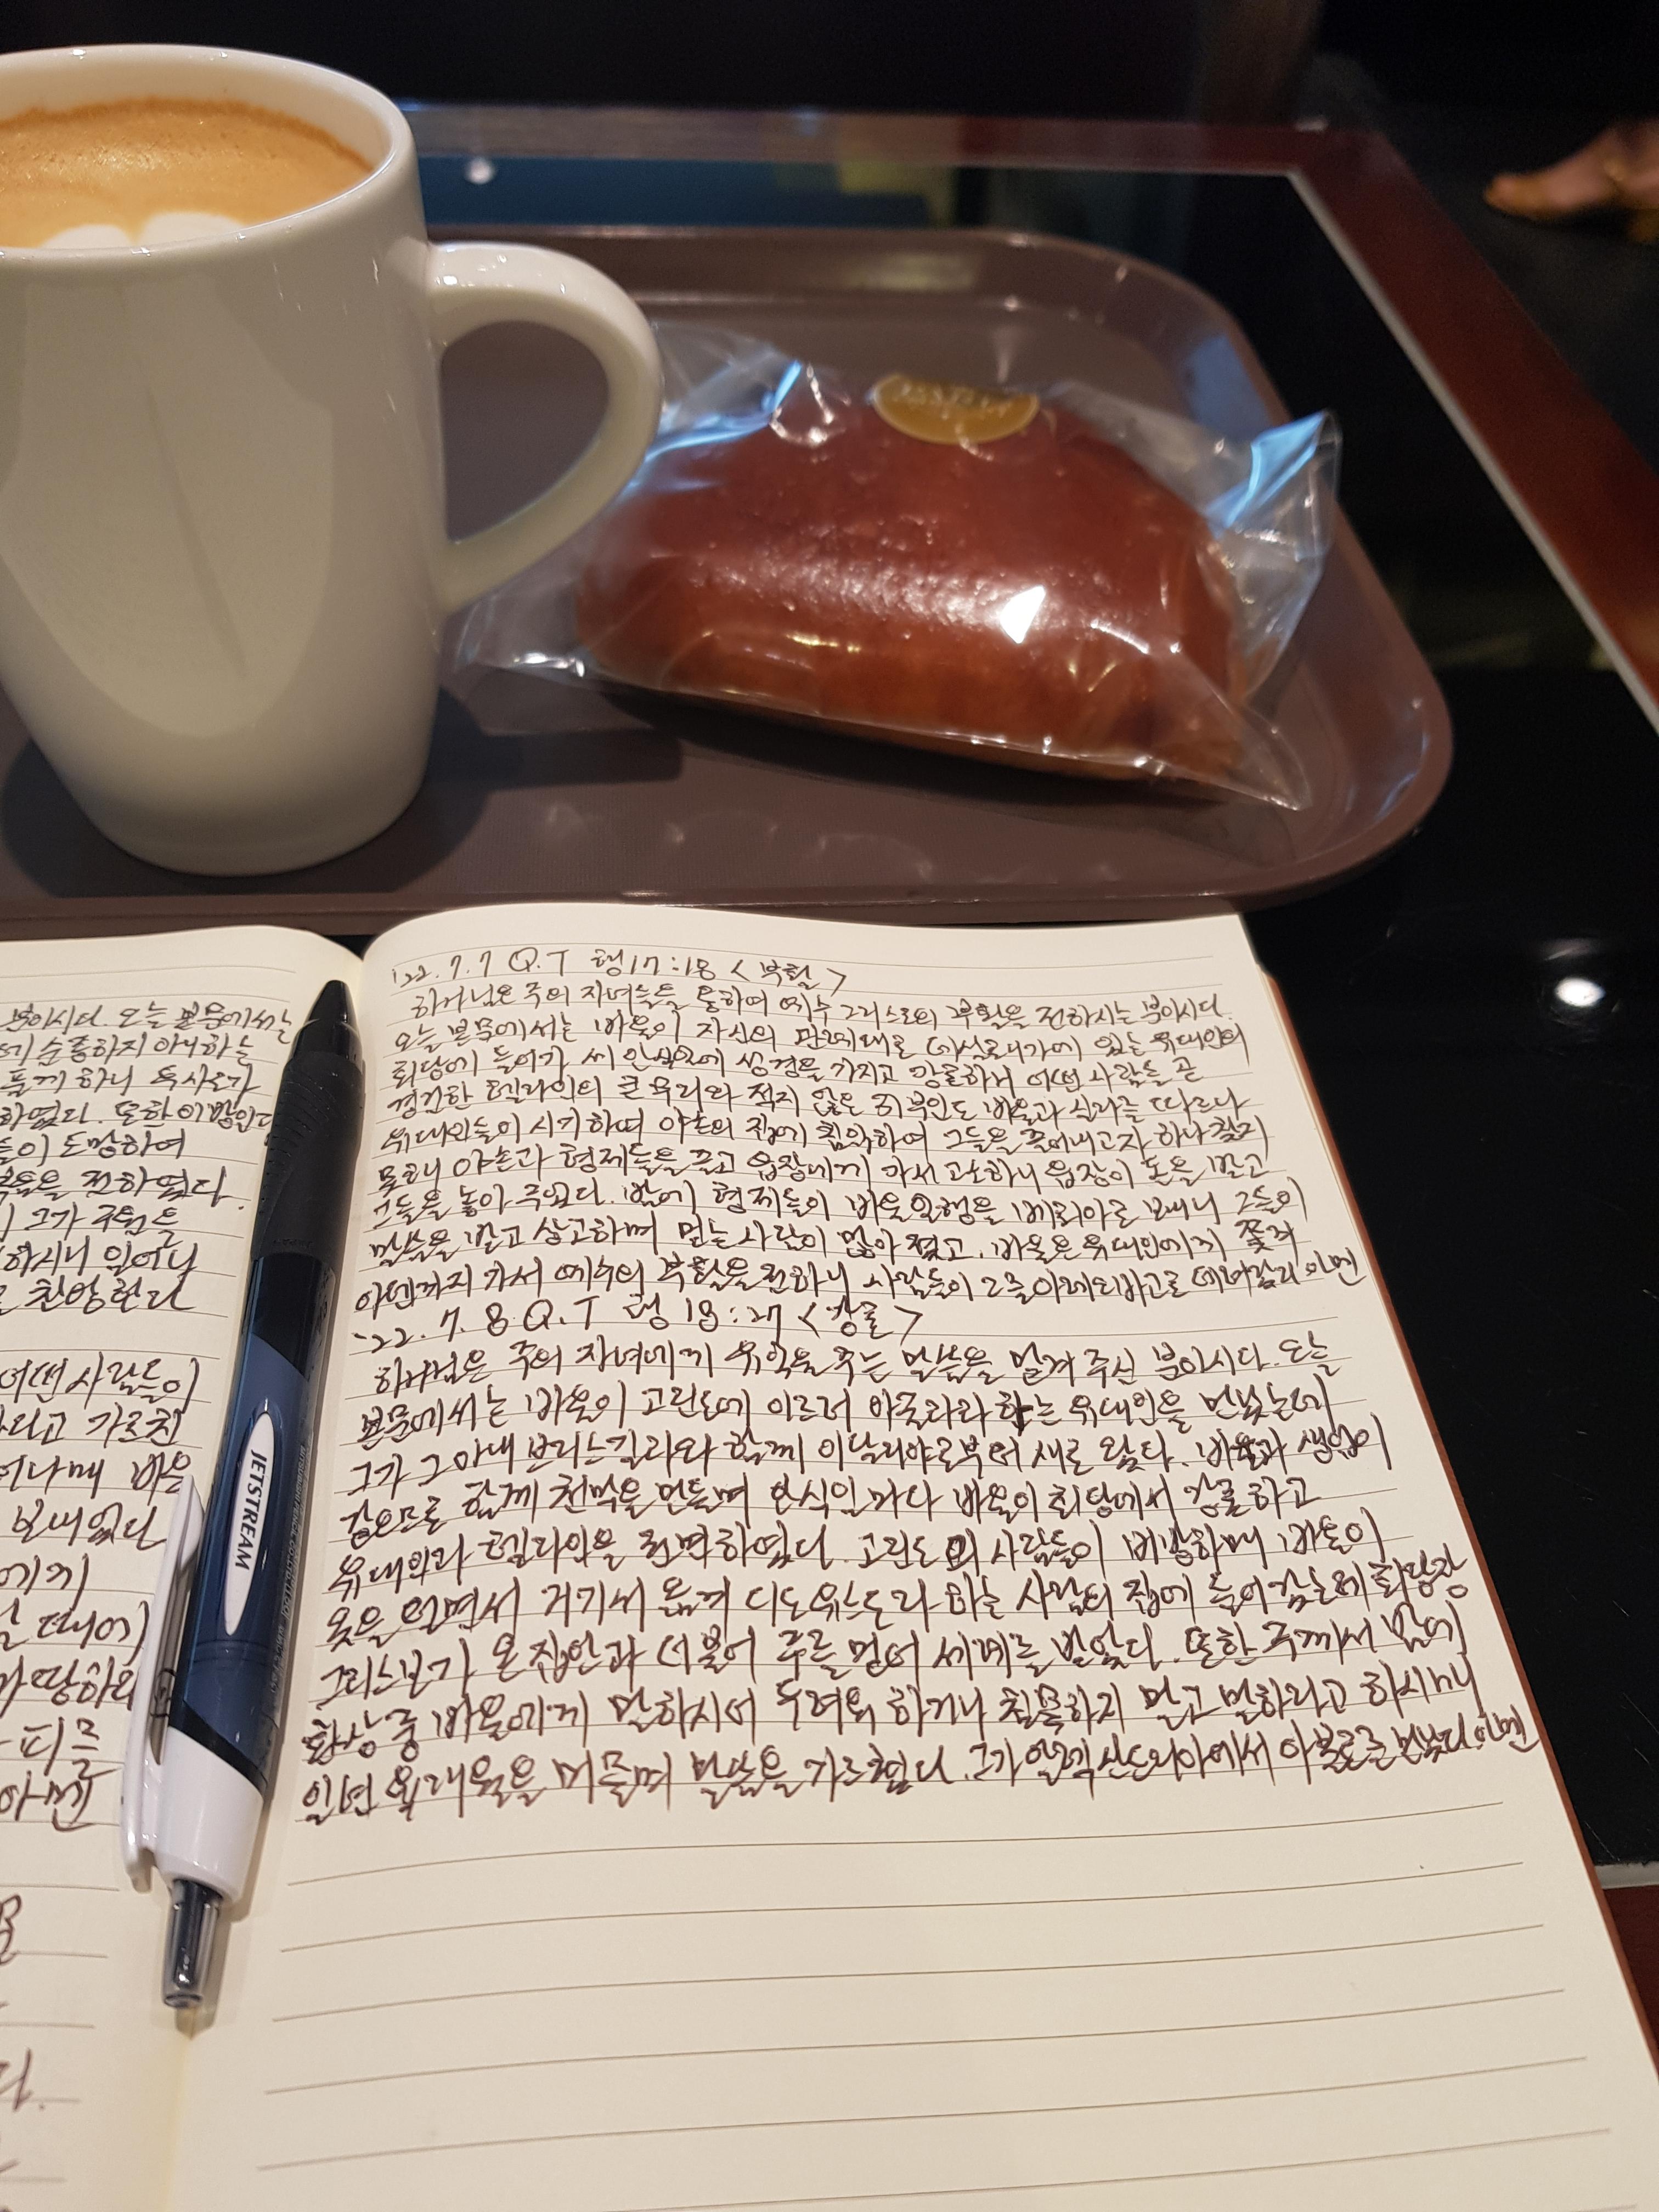 분이시다. 오늘 본문에서는
에 순종하지 아니하는
하였다. 또한 이방인과
들이 도망하여
을 전하였다.
그가 주림을
하시니 일어나
찬양한다
어떤 사람들이
라고 가르친
바울
보내었다
에게
때에
피를
아멘
JETSTREAM
'22.7.7 Q.T 행17:18 <부활>
하나님은 주의 자녀들을 통하여 예수 그리스도의 부활을 전하시는 분이시다.
오늘 본문에서는 바울이 자신의 관례대로 데살로니가에 있는 유대인의
회당에 들어가 세 안식일에 성경을 가지고 강론하며 어떤 사람들 곧
경건한 헬라인의 큰 무리와 적지 않은 귀부인도 바울과 실라를 따르나
유대인들이 시기하여 야손의 집에 침입하여 그들을 끌어내고자 하나 찾지
못하니 야손과 형제들을 끌고 읍장에게 가서 고소하니 읍장이 돈을 받고
그들을 놓아 주었다. 밤에 형제들이 바울 일행을 베뢰아로 보내니 그들이
말씀을 받고 상고하며 믿는 사람이 많아 졌고, 바울은 유대인에게 쫓겨
아덴까지 가서 예수의 부활을 전하니 사람들이 그를 아레오바고로 데려갔다 아멘
'22.7.8 Q.T 행 18:27 <강론>
하나님은 주의 자녀에게 유익을 주는 말씀을 맡겨 주신 분이시다. 오늘
본문에서는 바울이 고린도에 이르러 아굴라라 하는 유대인을 만났는데
그가 그 아내 브리스길라와 함께 이달리야로부터 새로 왔다. 바울과 생업이
같으므로 함께 천막을 만들며 안식일마다 바울이 회당에서 강론하고
유대인과 헬라인을 권면하였다. 고린도의 사람들이 비방하매 바울이
옷을 털면서 거기서 옮겨 디도 유스도라 하는 사람의 집에 들어갔는데 회당장
그리스보가 온 집안과 더불어 주를 믿어 세례를 받았다. 또한 주께서 밤에
환상 중 바울에게 말하시며 두려워 하거나 침묵하지 말고 말하라고 하시매
일년 육개월을 머물며 말씀을 가르쳤다. 그가 알렉산드리아에서 아볼로를 만났다. 아멘